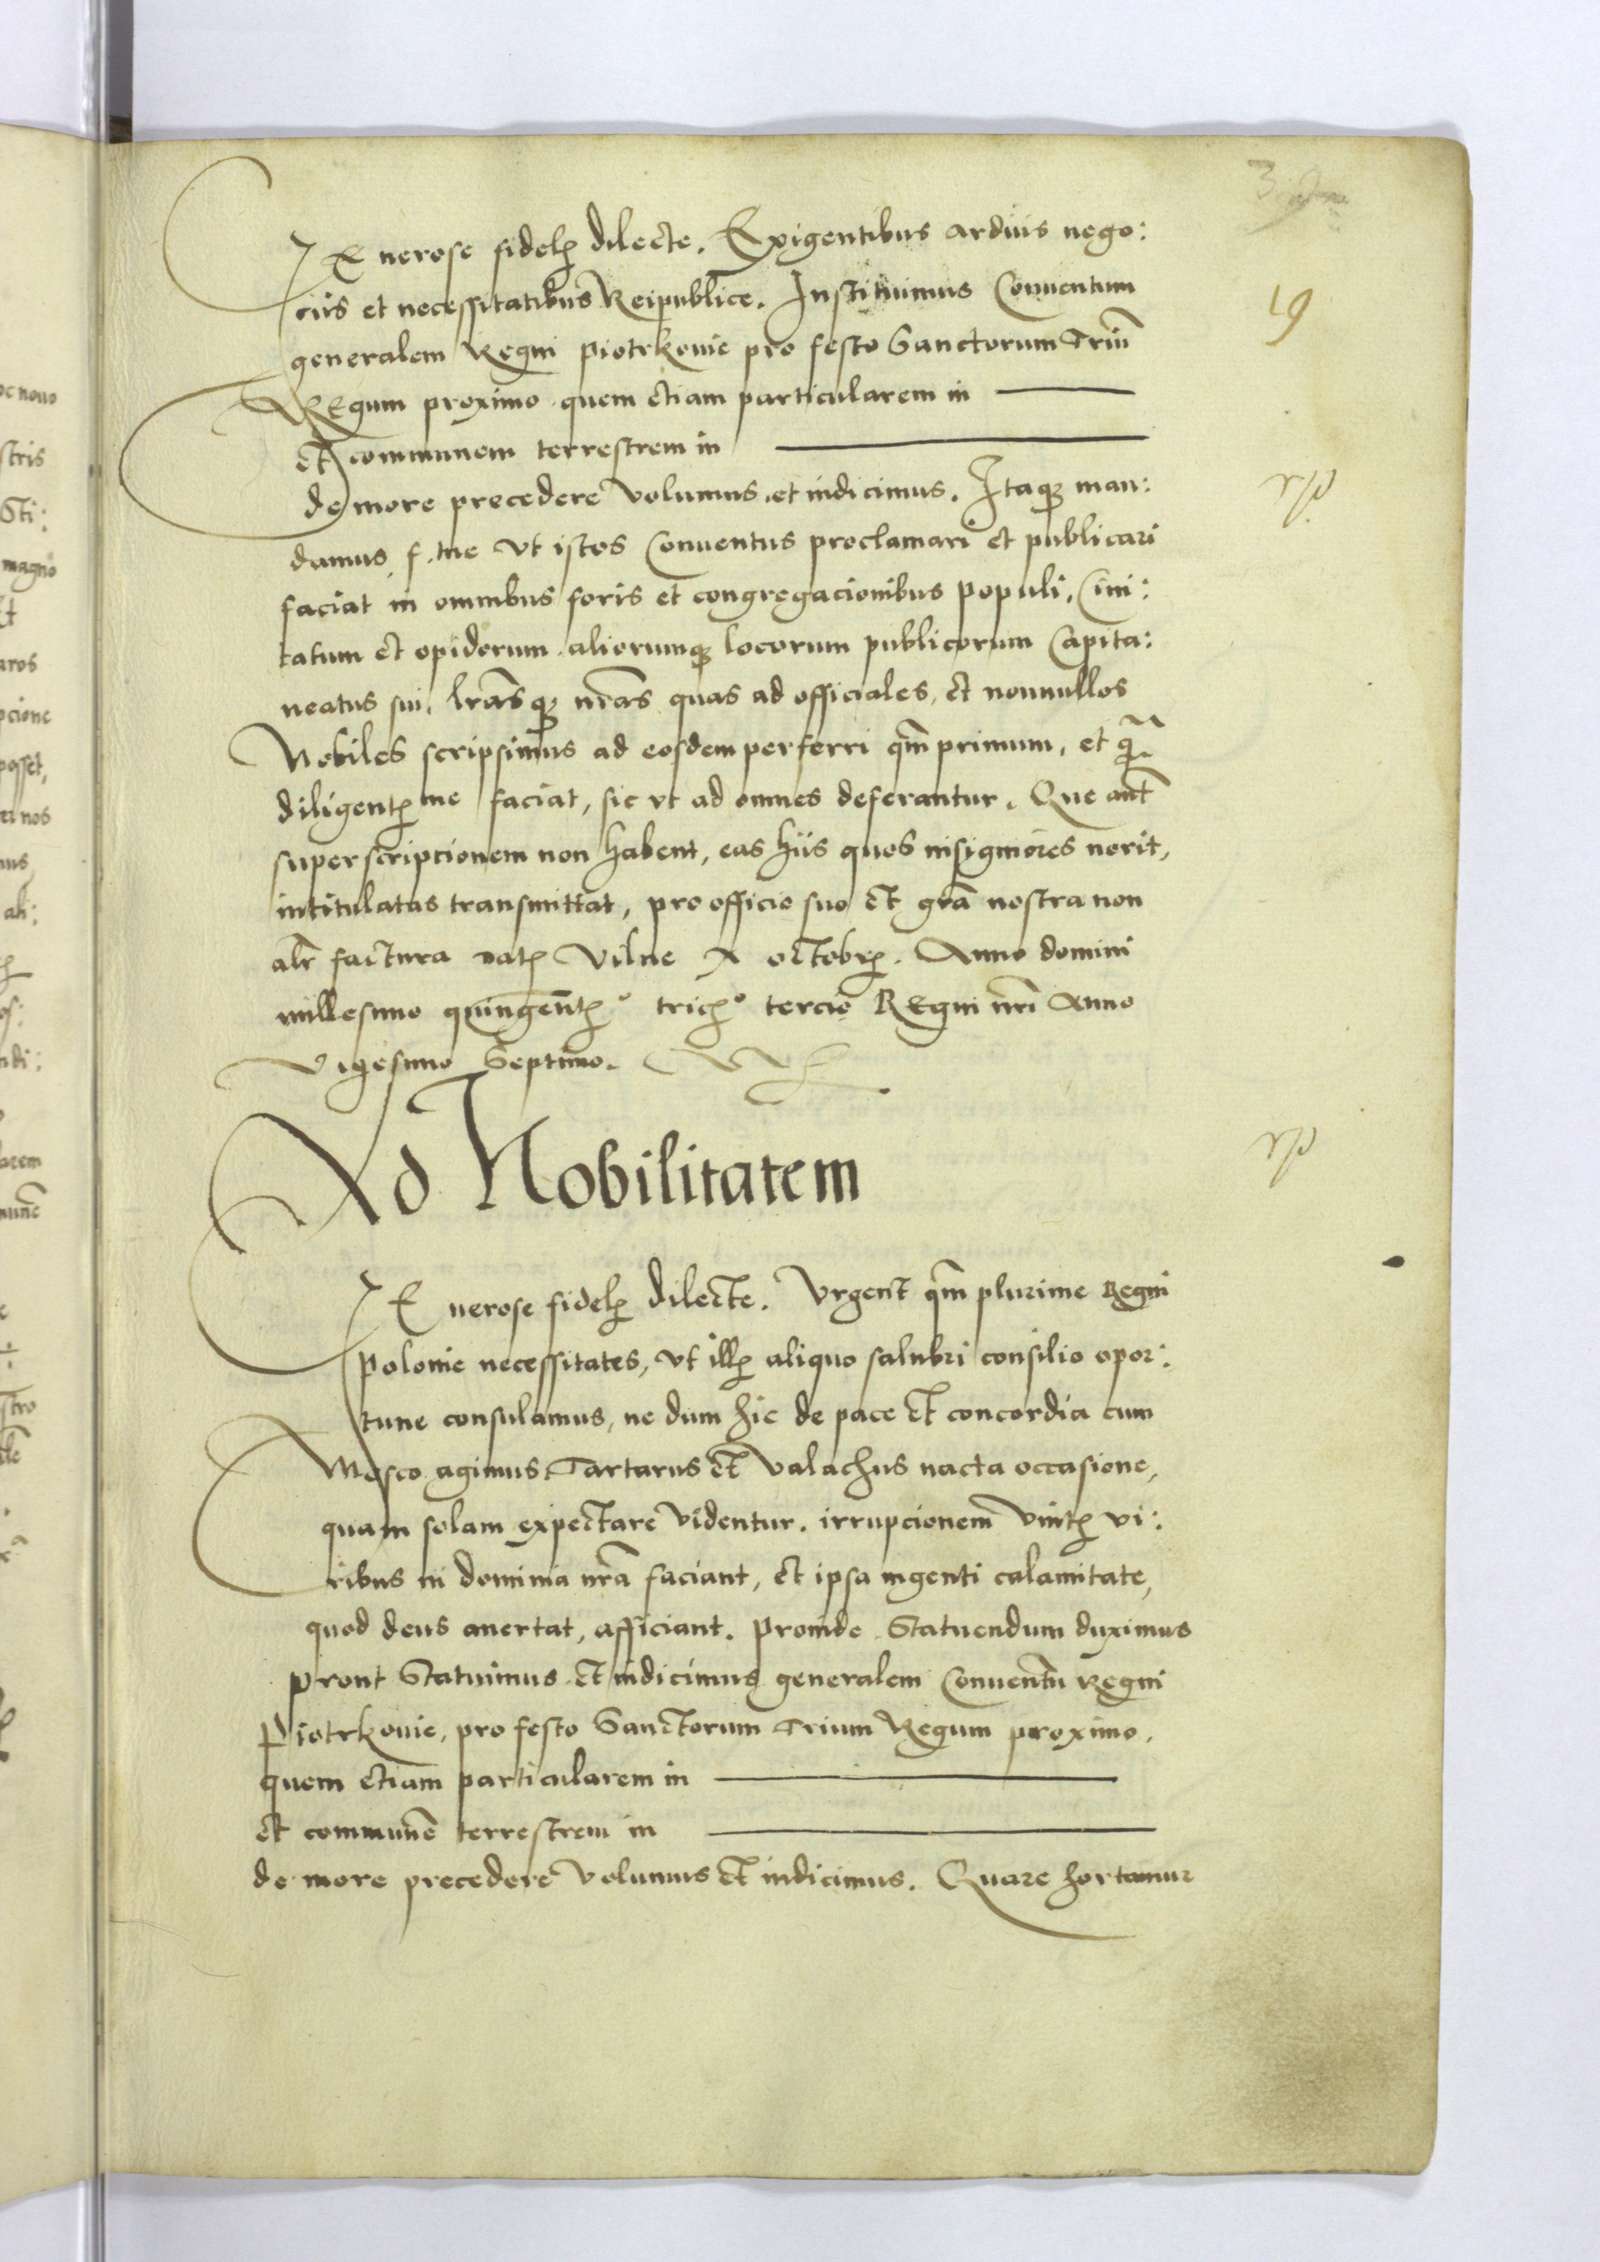 GEnerose fidel dilecte. Exigentibus arduis nego:
ciis et necessitatibus Reipublice. Instituimus Conuentum
generalem Regni Piotrkouie pro festo Sanctorum Triu
Regum proximo quem etiam particularem in
et communem terrestrem in
de more precedere volumus et indicimus. Itaque man:
damus f. tue vt istos Conuentus proclamari et publicari
faciat in omnibus foris et congregacionibus populi, Ciui:
tatum et opidorum aliorumque locorum publicorum Capita:
neatus sui, lras que nras quas ad officiales, et nonnullos
Nobiles scripsimus ad eosdem perferri qm primum, et
diligent me faciat, sic vt ad omnes deferantur. Que aut
superscriptionem non habent, eas hiis quos insigniores norit,
intitulatas transmittat, pro officio suo et gra nostra non
alr factura dat Vilne X octobr. Anno domini
millesimo quingent° tric° tercio Regni nri Anno
vigesimo Septimo.
Ad Nobilitatem
GEnerose fidel dilecte. Vrgent qm plurime Regni
Polonie necessitates, vt ill aliquo salubri consilio opor:
tune consulamus, ne dum hic de pace et concordia cum
Mosco agimus Tartarus et Valachus nacta occasione,
quam solam expectare videntur. irrupcionem vnit vi:
ribus in dominia nra faciant, et ipsa ingenti calamitate,
quod deus auertat, afficiant. Proinde Statuendum duximus
prout Statuimus et indicimus generalem Conuentu Regni
Piotrkouie, pro festo Sanctorum Trium Regum proximo.
quem etiam particularem in
et commune terrestrem in
de more precedere volumus et indicimus. Quare hortamur
19